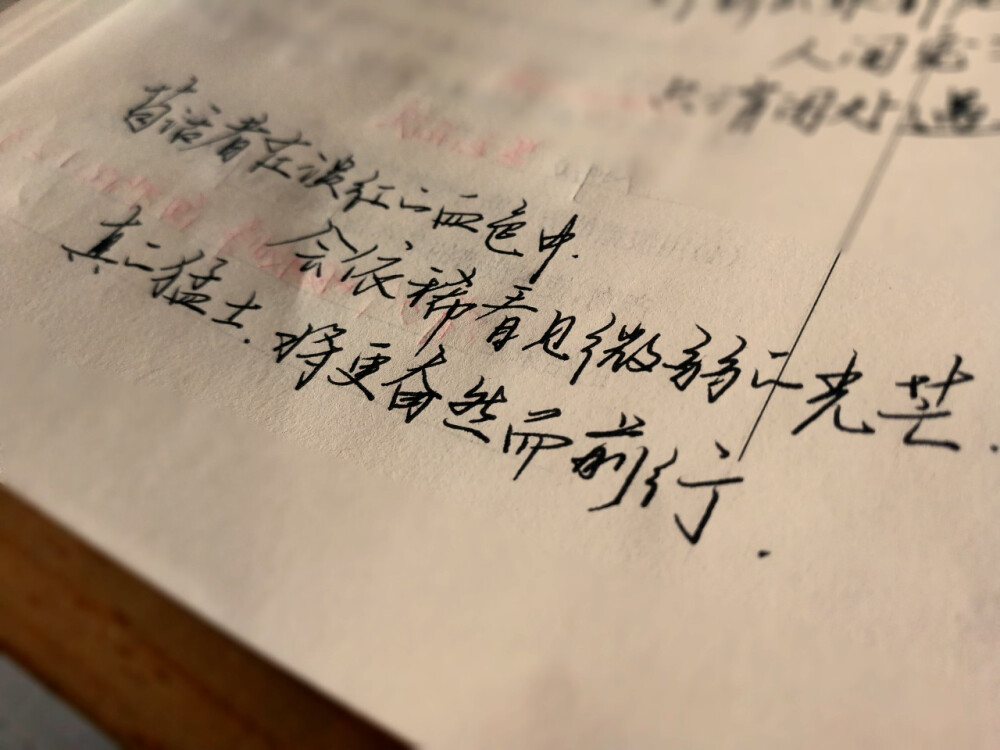 人间
只有闲处
苟活者在淡红的血色中.
会依稀看见微弱的光芒.
真的猛士.将更奋然而前行.